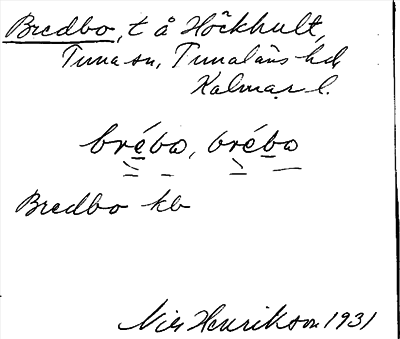 Bredbo, t å Höckhult,
Tuna sn, Tunaläns hd
Kalmar l.
brébo, brébo
Bredbo kb
Nils Henrikson 1931